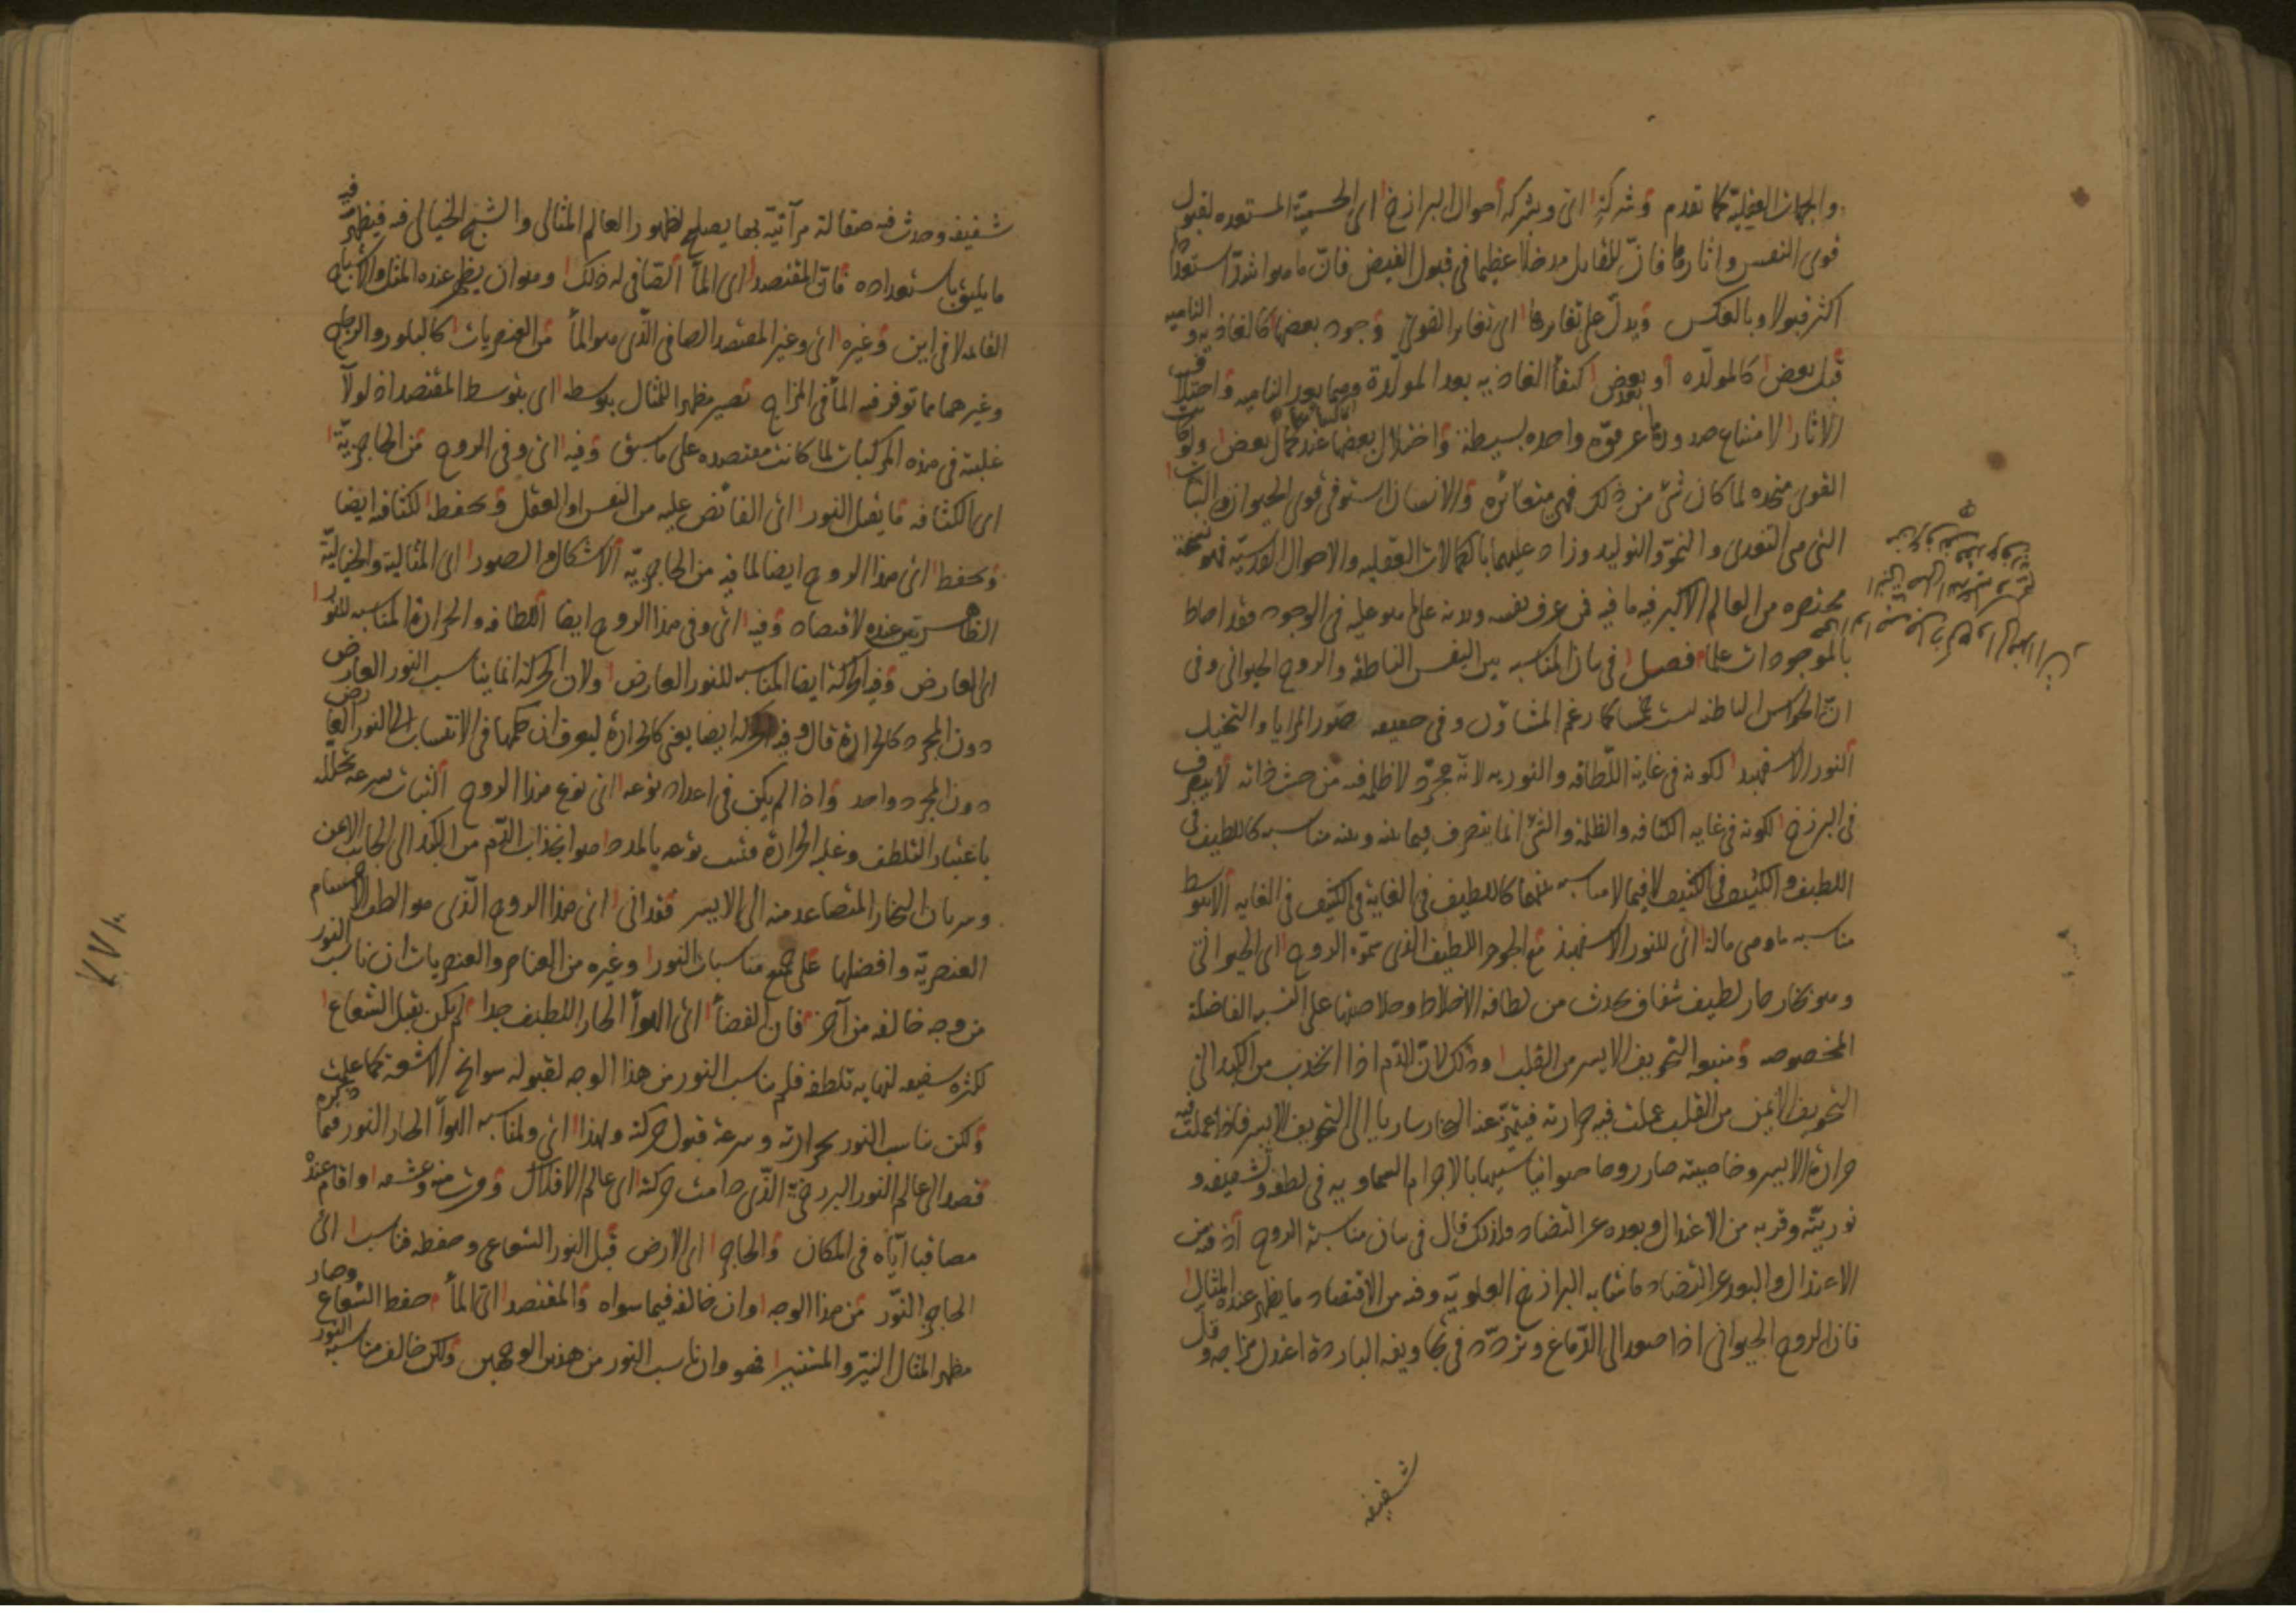 والجهات العقلية كما تقدم وشركة اى وبشركة أحوال البرازخ اى الجسمية المستعده لقبول
قوى النفس واثارها فانّ للقابل مدخلا عظيما فى قبول الفيض فانّ ما هو اشدّ استعدادا
اكثر قبولا وبالعكس ويدلّ على تغايرها اى تغاير القوى وجود بعضها كالغاذيه والناميه
قبل بعض كالمولّده أو بعد بعض كبقأ الغاذيه بعد المولّدة وبعد الناميه واختلاف
الاثار لامتناع صدورها عن قوّه واحده بسيطة واختلال بعضها عند كمال بعض ولو كانت
القوى متحده لما كان شئ من ذلك فهى متغائره والانسان استوفى قوى الحيوان والنبات
التى هى التغذى والنموّ والتوليد وزاد عليهما بالكمالات العقليه والاحوال القدسيّه فهو نسخة
مختصره من العالم الاكبر فيه ما فيه فمن عرف نفسه وبدنه على ما هو عليه فى الوجود فقد احاط
بالموجودات علما فصل فى بيان المناسبه بين النفس الناطقه والروح الحيوانى وفى
انّ الحواس الباطنه ليست خمسا كما زعم المشاؤن وفى حقيقه صور المرايا والتخيل
النور الاسفهبد لكونه فى غاية اللّطافه والنوريه لانّه مجرّد لا ظلمه فيه من حيث ذاته لا يتصرف
فى البرزخ لكونه فى غايه الكثافه والظلمة والشئ انما يتصرف فيما بينه وبينه مناسبه كاللطيف فى
اللطيف والكثيف فى الكثيف لا فيما لا مناسبه بينهما كاللطيف فى الغاية فى الكثيف فى الغايه الا بتوسط
مناسبه ما وهى ماله اى للنور الاسفهبد مع الجوهر اللطيف الذى سمّوه الروح اى الحيوانى
وهو بخار حار لطيف شفاف يحدث من لطافه الاخلاط وخلاصتها على النسب الفاضلة
المخصوصه ومنبعه التجويف الايسر من القلب وذلك لانّ الدّم اذا انجذب من الكبد الى
التجويف الأيمن من القلب عملت فيه حرارته فيتميّز عنه البخار ساريا الى التجويف الايسر فاذا عملت فيه
حرارة الايسر وخاصيته صار روحا حيوانيا شبيها بالاجرام السماويه فى لطفه وشفيفه و
نوريّته وقربه من الاعتدال وبعده عن التضاد ولذلك قال فى بيان مناسبة الروح اذ فيه من
الاعتدال والبعد عن التضاد ما شابه البرازخ العلويّه وفيه من الاقتصاد ما يظهر عنده المثال
فان الروح الحيوانى اذا صعد الى الدّماغ وتردّد فى تجاويفه الباردة اعتدل مزاجه وقلّ
شفيفه
شفيفه وحدث فيه صقالة مرآتيّة بها يصلح لظهور العالم المثالى والشبح الخيالى فيه فيظهر فيه
ما يليق باستعداده فانّ المقتصد اى المأ الصافى له ذلك وهو ان يظهر عنده المثل والاشباح
القائمه لا فى اين وغيره اى وغير المقتصد الصافى الّذى هو المأ من العنصريات كالبلور والزجاج
وغيرهما مما توفر فيه المأ فى المزاج تصير مظهر المثال بتوسطه اى بتوسط المقتصد اذ لولا
غلبته فى هذه المركبات لما كانت مقتصده على ما سبق وفيه اى وفى الروح من الحاجزيّة
اى الكثافه ما يقبل النور اى الفائض عليه من النفس او العقل ويحفظه لكثافه ايضا
ويحفظ اى هذا الروح ايضا لما فيه من الحاجزيّه الاشكال والصور اى المثاليّة والخياليّة
الظاهرتين عنده لاقتصاد وفيه اى وفى هذا الروح ايضا اللطافه والحرارة المناسبه للنور
اى العارض وفيه الحركة ايضا المناسبه للنور العارض ولان الحركة انما يناسب النور العارض
دون المجرد كالحرارة قال وفيه الحركه ايضا يعنى كالحرارة ليعرف ان حكمها فى الانتساب الى النور العارض
دون المجرد واحد واذا لم يكن فى اعداد نوعه اى نوع هذا الروح الثبات بسرعه تحلّله
باعتبار التلطف وغلبه الحرارة فثبت نوعه بالمدد اى هو انجذاب الدّم من الكبد الى الجانب الايمن
وسريان البخار المتصاعد منه الى الايسر فقد اتى اى هذا الروح الّذى هو الطف الاجسام
العنصريّة وافضلها على جميع مناسبات النور وغيره من العناصر والعنصريات ان ناسب النور
من وجه خالفه من آخر فان الفضأ اى الهوأ الحار اللطيف جدا لم يكن يقبل الشعاع
لكثرة شفيفه لنهايه تلطفه فلم يناسب النور من هذا الوجه لقبوله سوانح الاشعة كما علمت
ولكن ناسب النور بحرارته وسرعة قبول حركته ولهذا اى ولمناسبه الهوأ الحار النور فيما ذكره
قصد الى عالم النور البرزخىّ الّذى دامت حركته اى عالم الافلاك وقرب منه وعشقه واقام عنده
مصاقبا ايّاه فى المكان والحاجز اى الارض قبل النور الشعاعى وحفظه فناسب اى
الحاجز النوّر من هذا الوجه وان خالفه فيما سواه والمقتصد اى المأ حفظ الشعاع وصار
مظهر المثال النيّر والمستنير فهو وان ناسب النور من هذين الوجهين ولكن خالف مناسبه النور